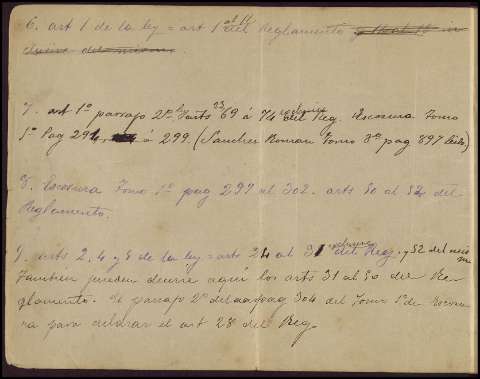 6. art 1 de la ley = art 1 al 11 del Reglamento
7. art 1º parrafo 2º y arts 23 69 á 74 del Reg. Escosura Tomo
1º Pag 294 á 299. (Sanchez Roman Tomo 3º pag 897
8. Escosura Tomo 1º pag 299 al 302. arts 50 al 52 del
Reglamento.
9. arts 2, 4 y 5 de la ley = arts 24 al 31 del Reg. y 52 del mismo
Tambien pueden decirse aquí los arts 31 al 50 del Re-
glamento. El parrafo 2º de la pag 304 del Tomo 1º de Escosu-
ra para el art 28 del Reg.